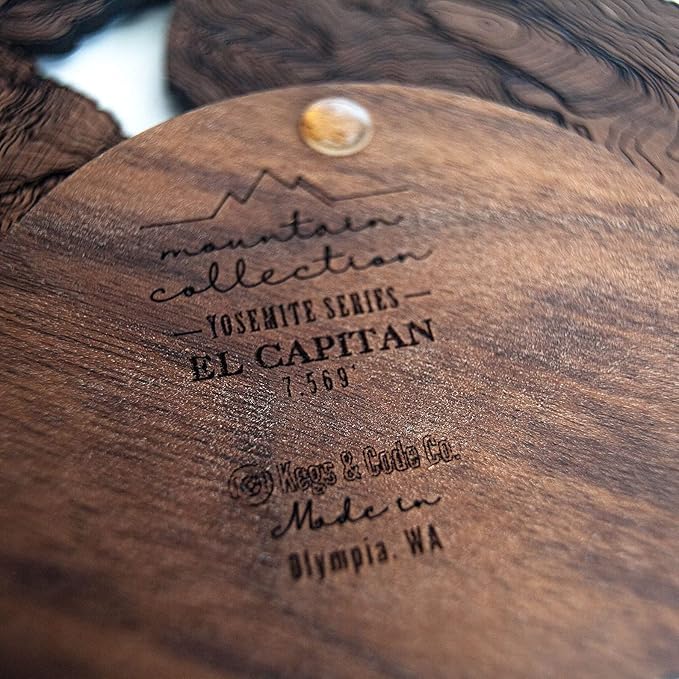 mountain
collection
YOSEMITE SERIES
EL CAPITAN
7.569'
Kegs & Code Co.
Made in
Olympia, WA